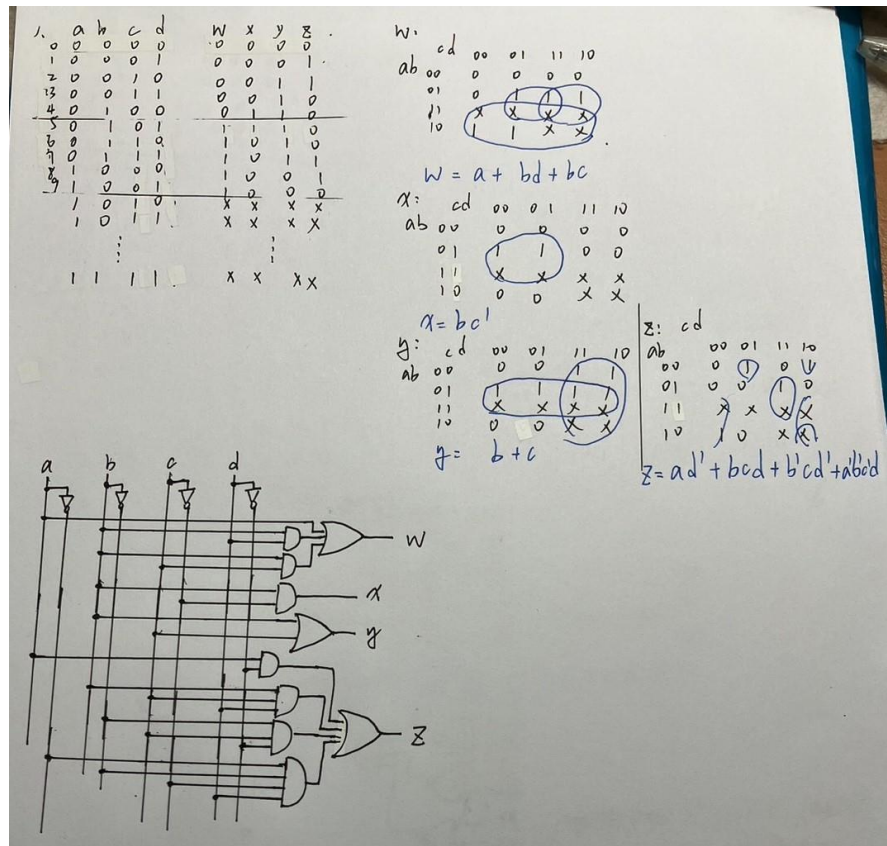 1. a b c d w x y z
0 0 0 0 0 0 0 0 0
1 0 0 0 1 0 0 0 1
2 0 0 1 0 0 0 1 1
3 0 0 1 1 0 0 1 0
4 0 1 0 0 0 1 1 0
5 0 1 0 1 1 0 1 0
6 0 1 1 0 1 0 1 0
7 0 1 1 1 1 0 1 1
8 1 0 0 0 1 0 0 1
9 1 0 0 1 1 0 0 0
1 0 1 0 x x x x
1 0 1 1 x x x x
1 1 1 1 x x x x
w:
cd 00 01 11 10
ab 00 0 0 0 0
01 0 1 1 1
11 x x x x
10 1 1 x x
w = a + bd + bc
x:
cd 00 01 11 10
ab 00 0 0 0 0
01 1 1 0 0
11 x x x x
10 0 0 x x
x = bc'
y:
cd 00 01 11 10
ab 00 0 0 1 1
01 1 1 1 1
11 x x x x
10 0 0 x x
y = b + c
z: cd
ab 00 01 11 10
00 0 1 0 1
01 0 0 1 0
11 x x x x
10 1 0 x x
z = ad' + bcd + b'cd' + a'b'c'd
a b c d
w
x
y
z